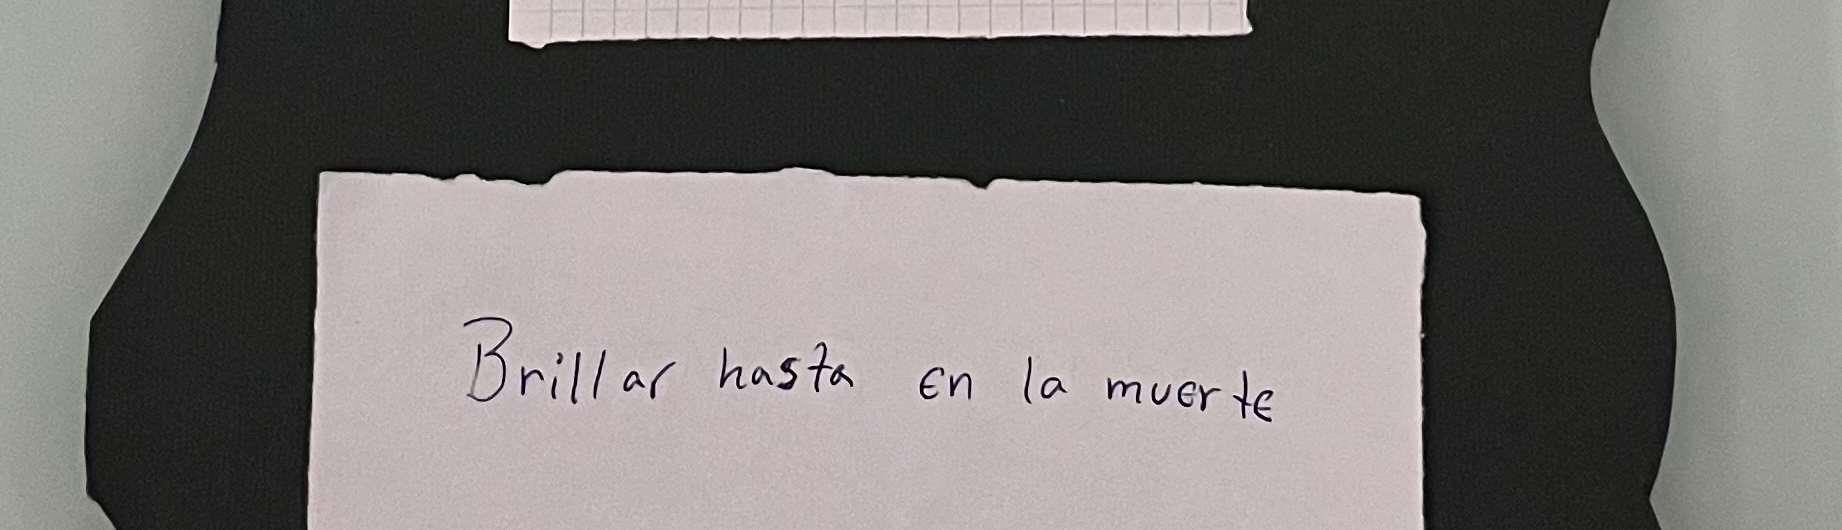 Brillar hasta en la muerte